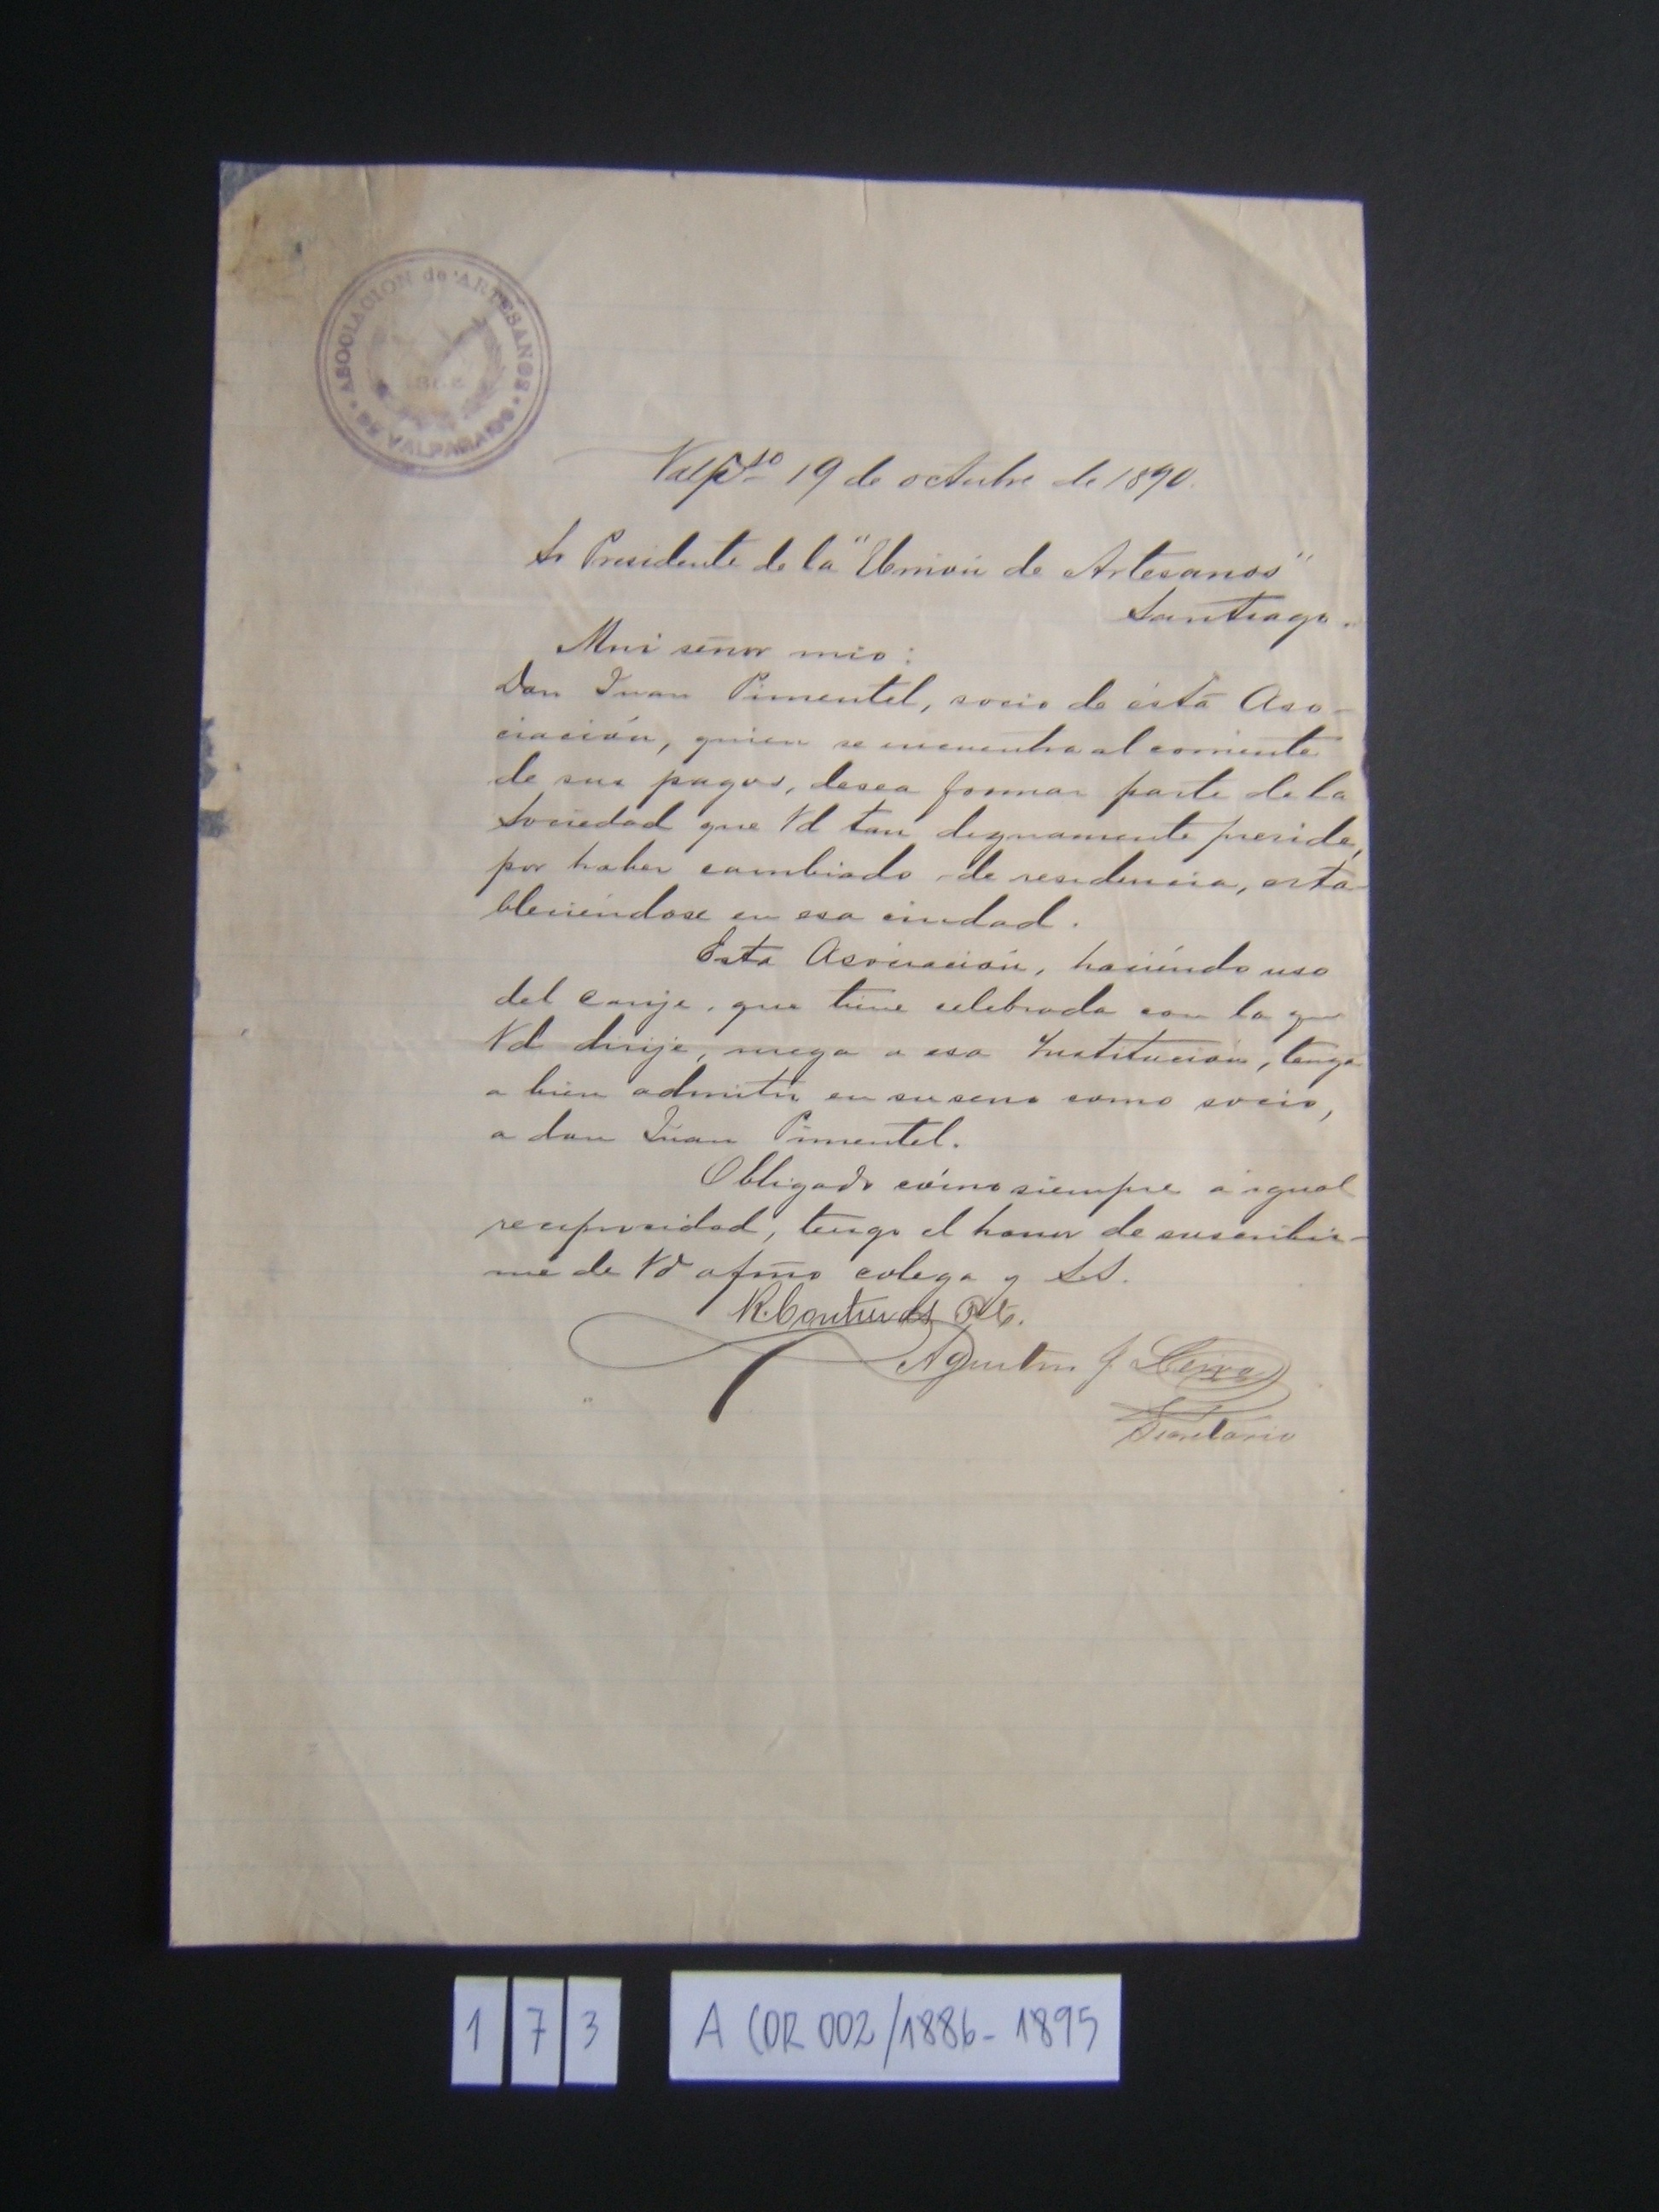 ASOCIACION de ARTESANOS
DE VALPARAISO
Valpso 19 de octubre de 1890.
Sr Presidente de la "Union de Artesanos"
Santiago.
Mui señor mio:
Don Juan Pimentel, socio de ésta Aso-
ciación, quien se encuentra al corriente
de sus pagos, desea formar parte de la
Sociedad que Vd tan dignamente preside,
por haber cambiado de residencia, esta-
bleciéndose en esa ciudad.
Esta Asociación, haciéndo uso
del canje, que tiene celebrada con la que
Vd dirije, ruega a esa Institución, tenga
a bien admitir en su seno como socio,
a don Juan Pimentel.
Obligado cómo siempre a igual
reciprocidad, tengo el honor de suscribir-
me de Vd afmo colega y S.S.
R. Contreras Pte.
Agustin J. Leiva
Secretario
1 7 3
A COR 002/1886-1895